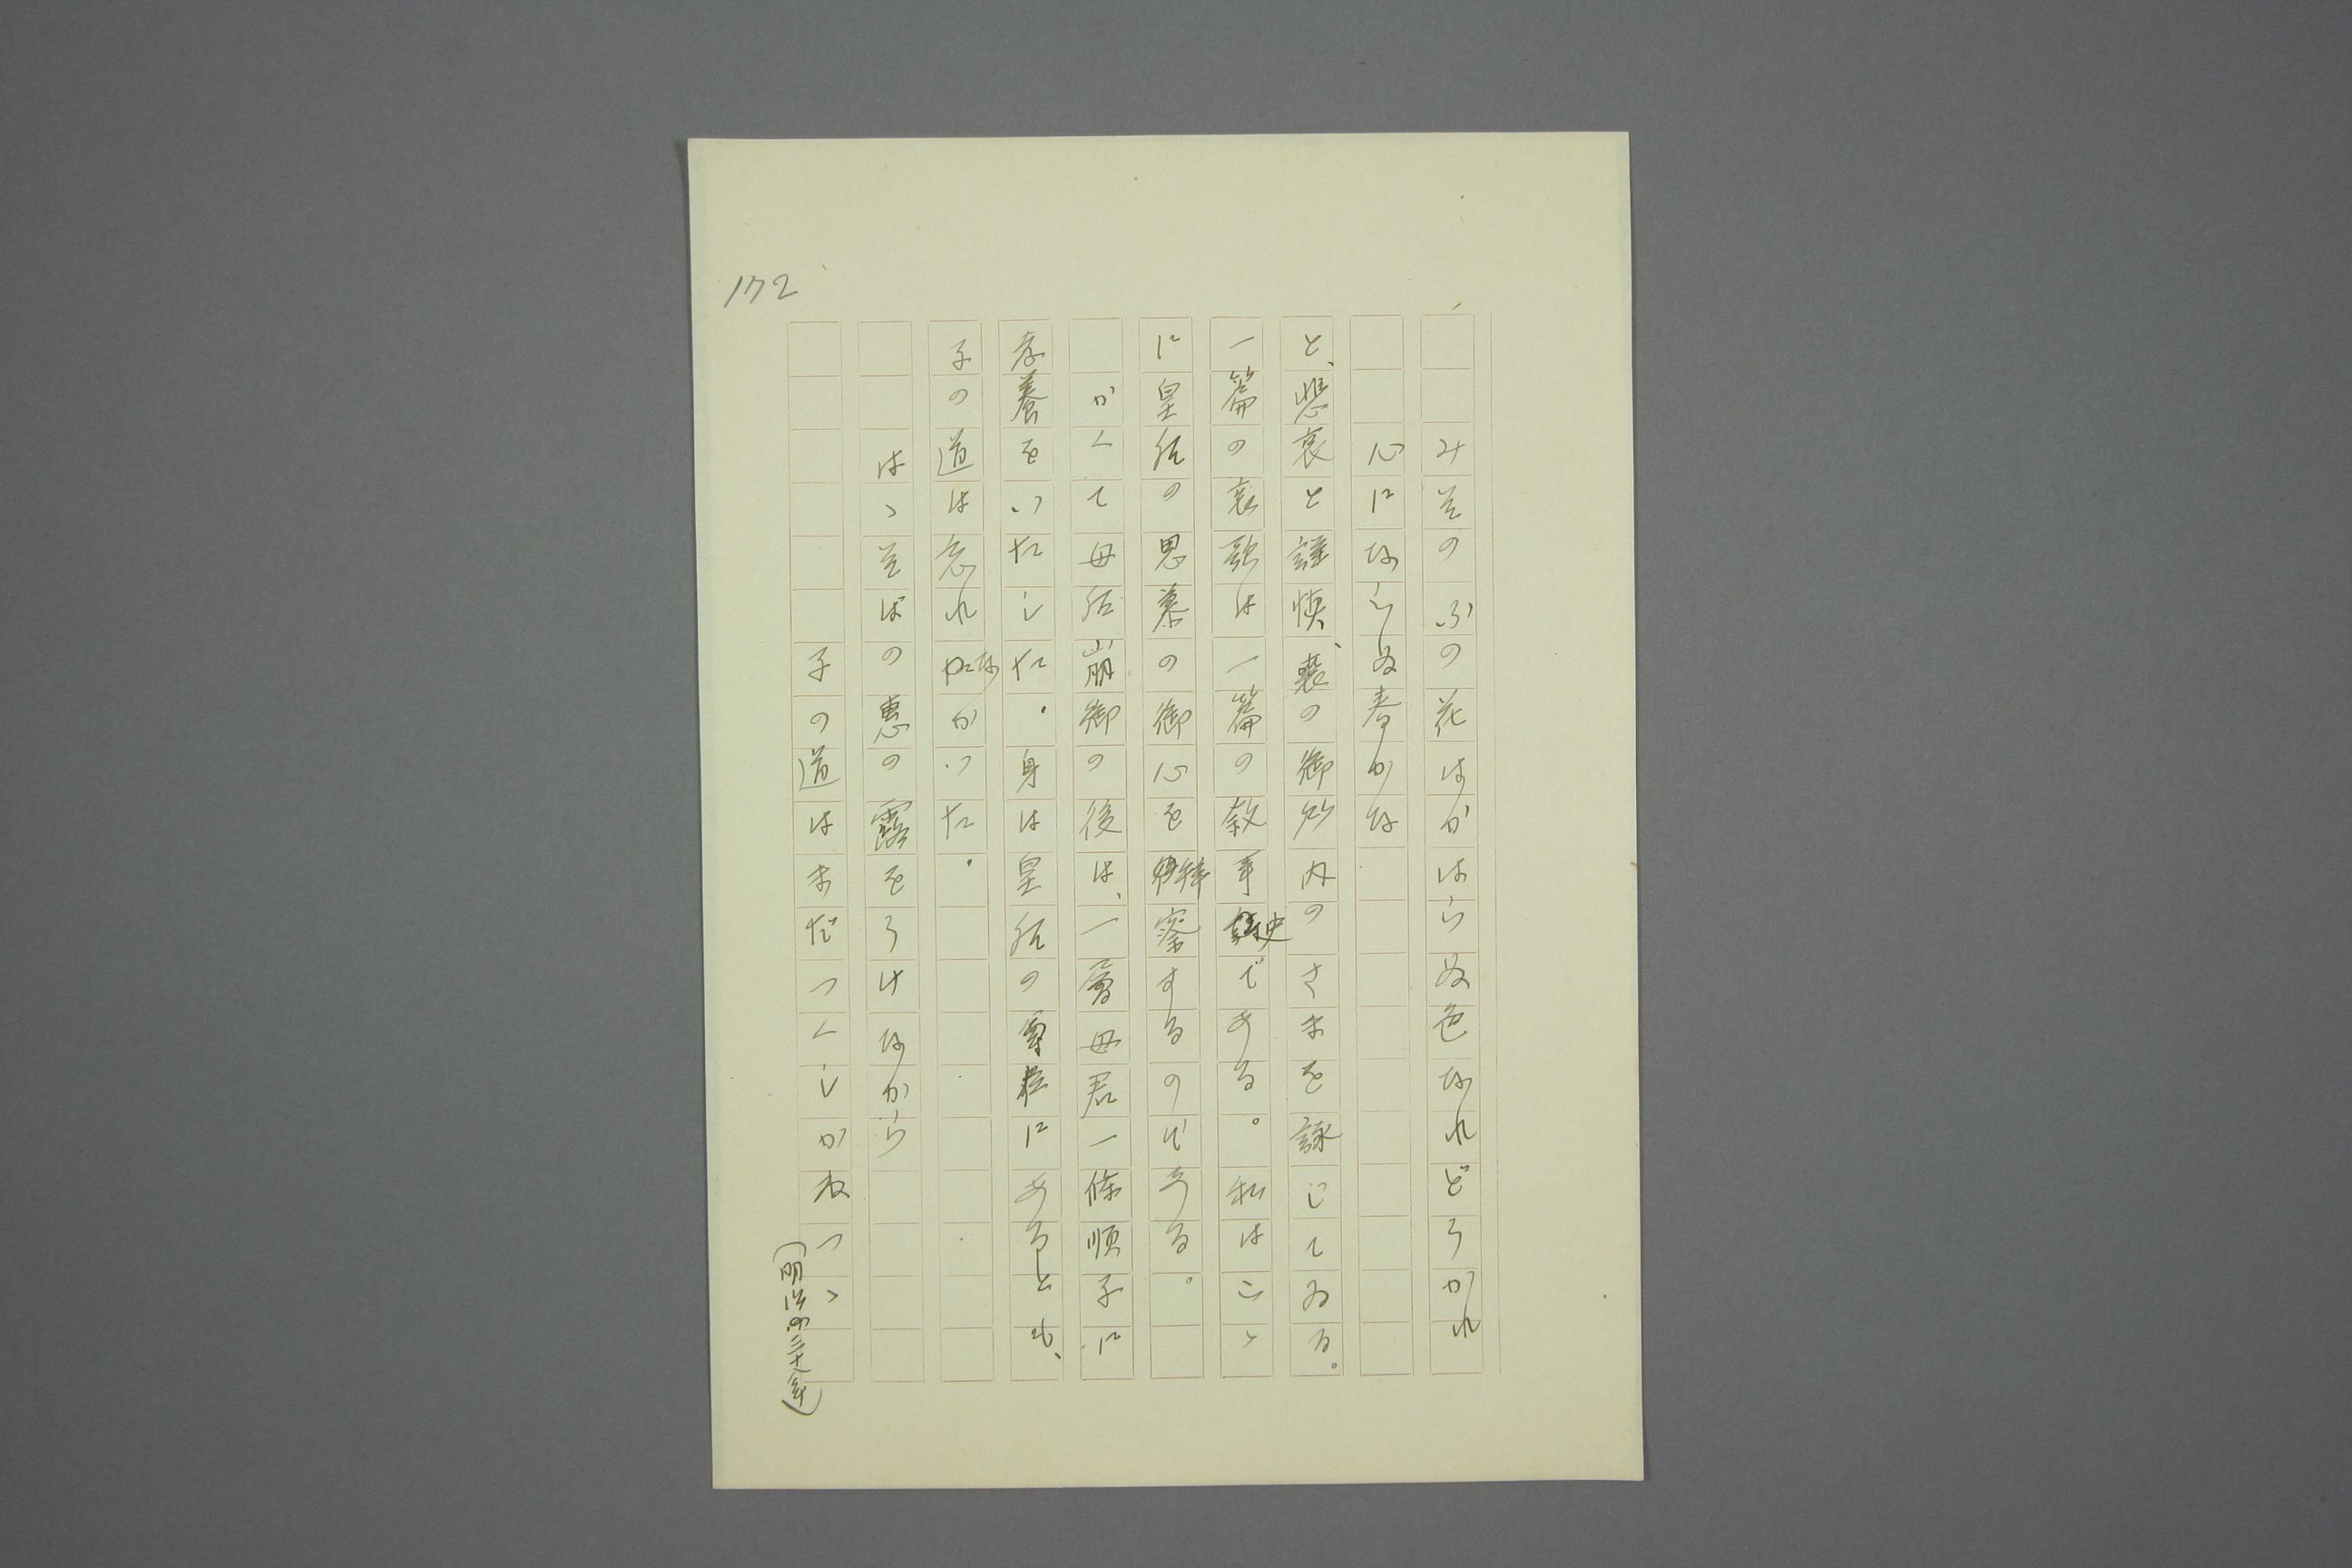 172
みそのふの花はかはらぬ色なれどうかれ
心にならぬ春かな
と、悲哀と謹慎、喪の御所内のさまを詠じてゐる。
一篇の哀歌は一篇の叙事史である。私はこゝ
に皇后の思慕の御心を拝察するのである。
かくて母后崩御の後は、一層母君一條順子に
孝養をいたした。身は皇后の尊位にあるとも、
子の道は忘れなかつた。
はゝそばの恵の露をうけなから
子の道はまだつくしかねつゝ
(明治四三十八年)